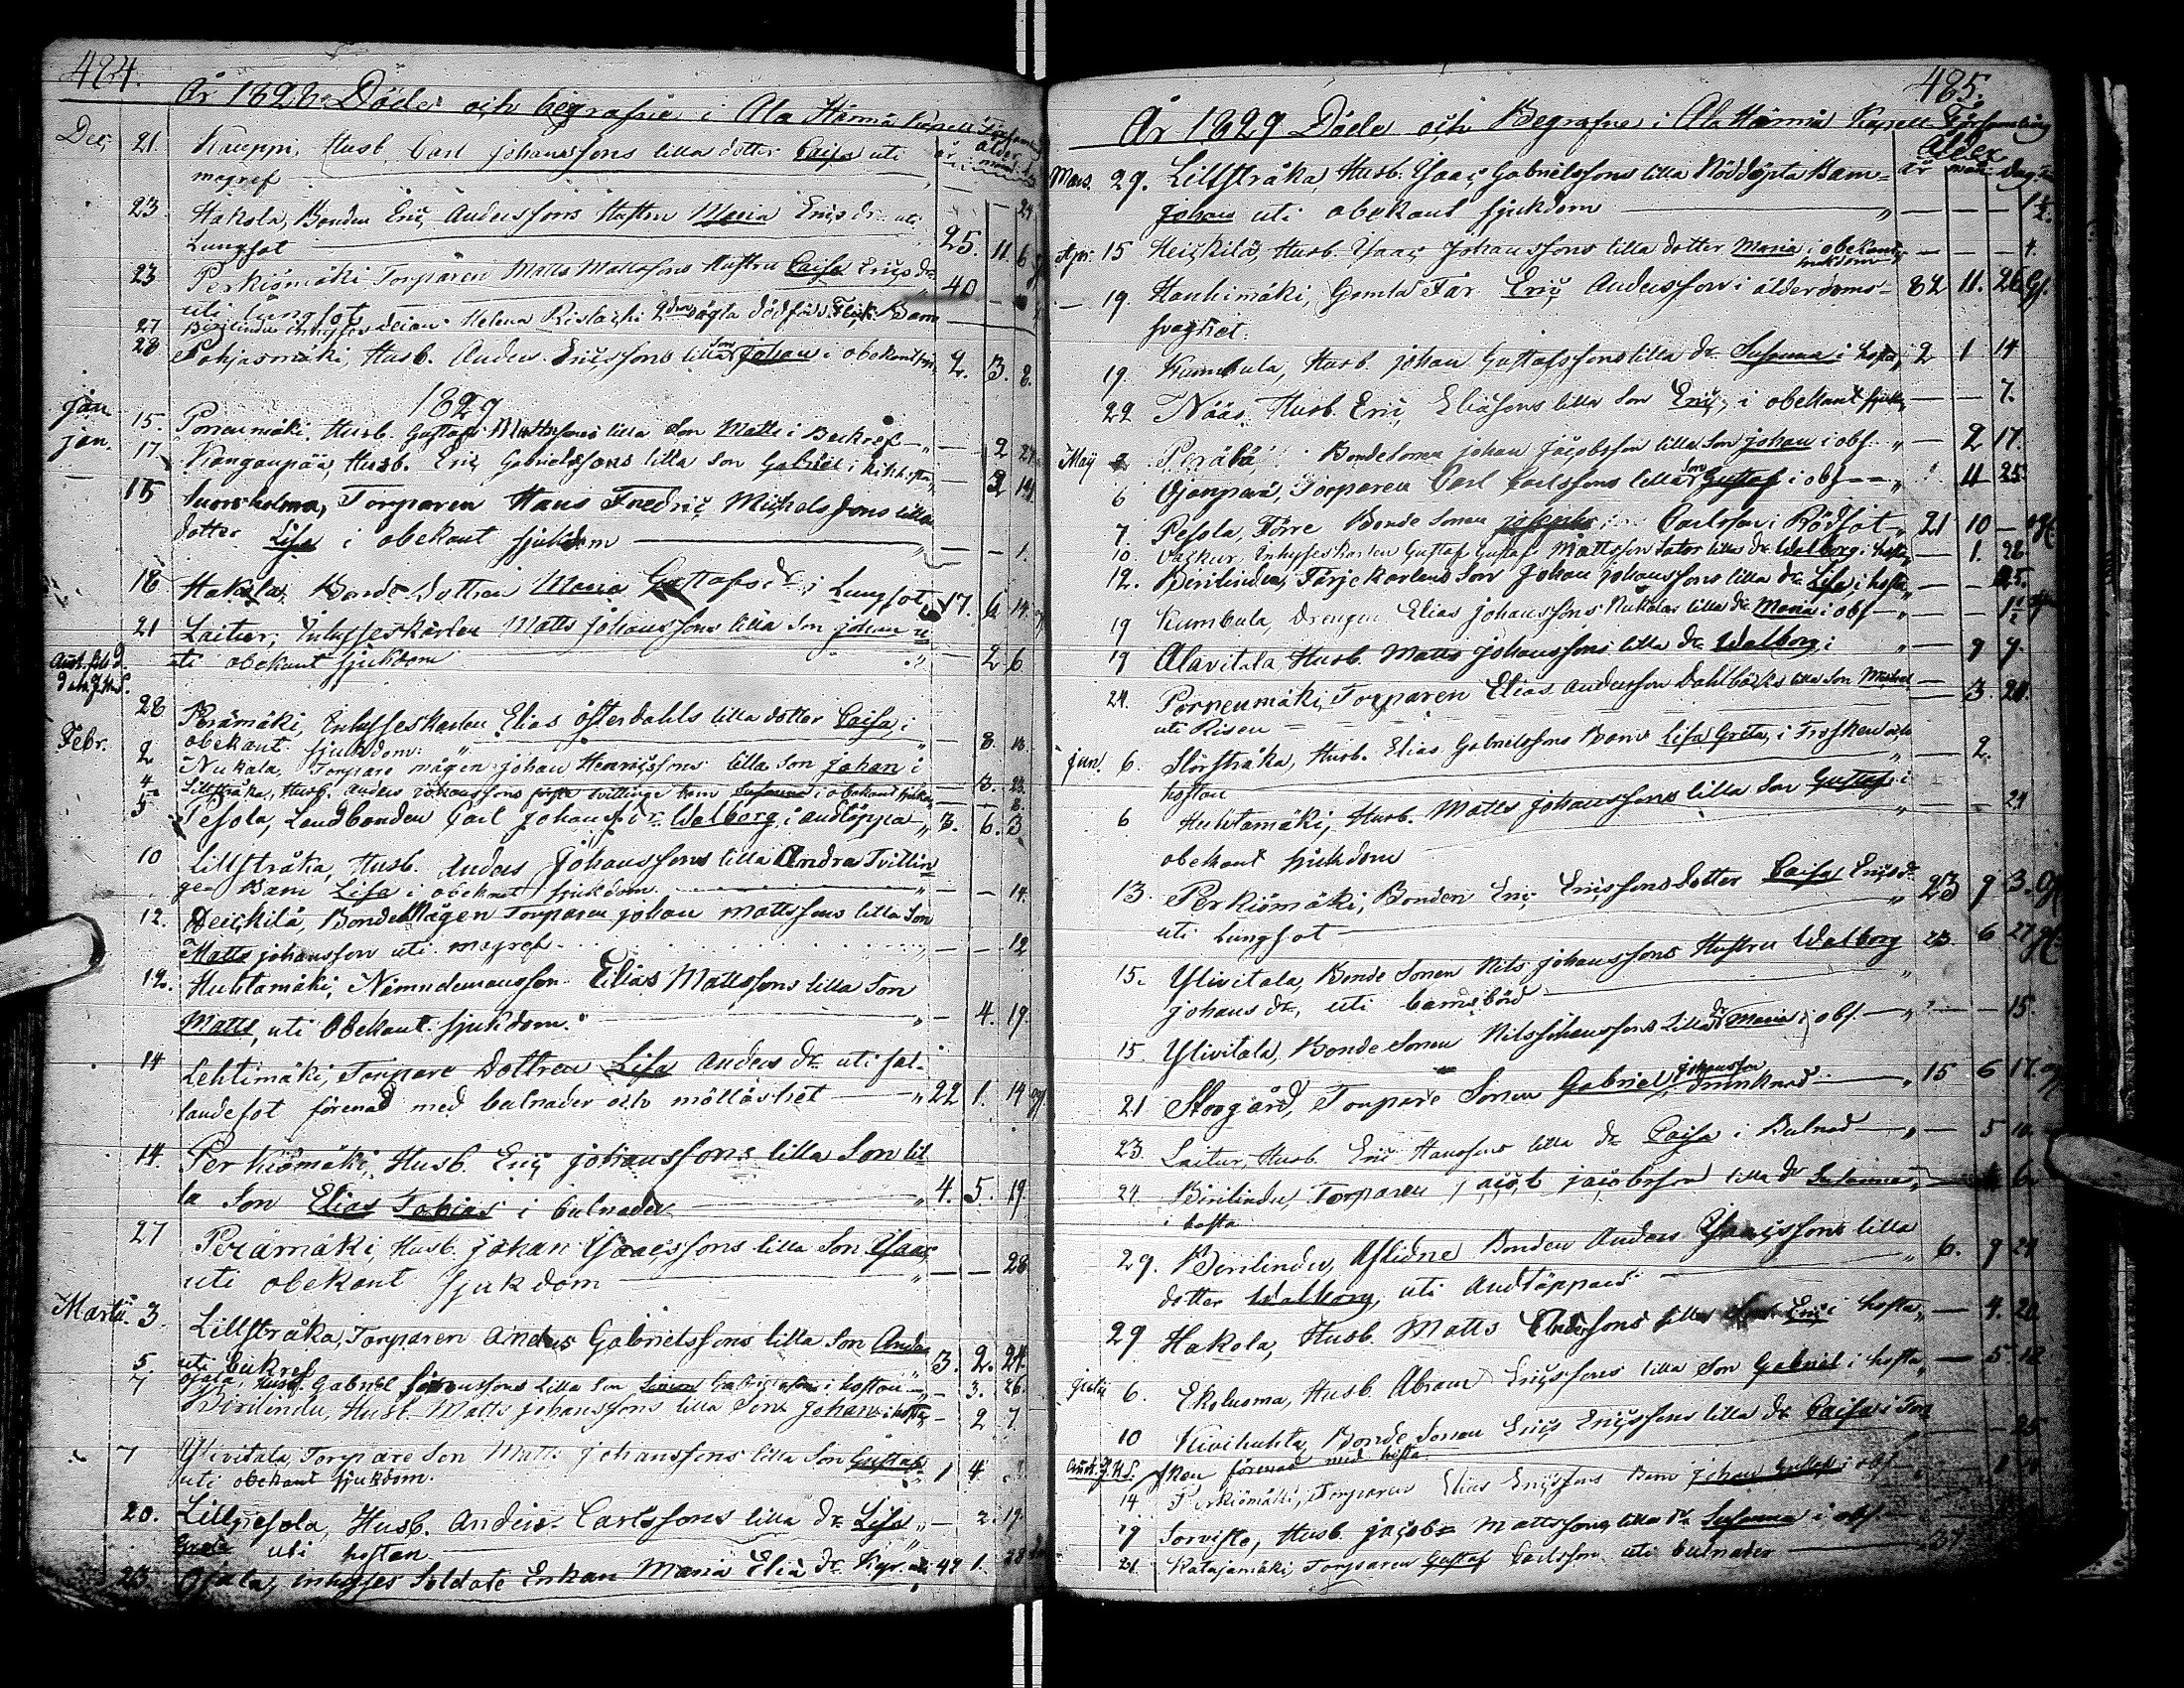 484.
År 1828 Döde och begrafne i Ala Härmä Kapell Församling
ålder
år mån.
Dec. 21. Kauppi, Husb. Carl Johanssons lilla dotter Caisa uti
magref — — 24
23 Hakola, Bonden Eriç Anderssons Hustru Maria Eriçs dr uti
Lungsot 25. 11. 6
23 Perkiömäki Torparen Matts Mattssons Hustru Caisa Eriçs dr
uti lungsot 40 —
27 Helena dödfödt Flick Barn
28 Pohjasmäki, Husb. Anders Eriçssons lilla son Johan i obekant 2. 3. 8.
1829
Jan. 15. Porrenmäki Husb. Gustaf Mattssons lilla Son Matts i Beckref — 2 24
Jan. 17 Kangaspää, Husb. Eriç Gabrielssons lilla son Gabriel i kikhosta — 3 14
— 18 Torparen Hans Fredriç Michelssons lilla
dotter Lisa i obekant sjukdom — — 1.
18 Hakola, Bonde Dottren Maria Gustafs dr i Lungsot 17. 6 14
21 Laitur, Inhysseskarlen Matts Johanssons lilla son Johan u
ti obekant sjukdom — 2 6
28 Perämäki, Inhysseskarlen Elias Österdahls lilla dotter Caisa, i
obekant sjukdom — 8. 18.
Febr. 2 Nukala, Torpare mågen Johan Henriçssons lilla Son Johan i — 3. 23.
4 Lillstråka, Husb. Anders Johanssons första tvillinge barn Susanna i obekant sjukdom — — 8.
5 Pesola, Landbonden Carl Johanss. dr Walborg i andtäppa 3. 6. 3
10 Lillstråka, Husb. Anders Johanssons lilla Andra Tvillin
ge Barn Lisa i obekant sjukdom — — 14.
12. Heiçkilä, BondeMågen Torparen Johan Mattssons lilla Son
Matts Johansson uti magref — — 12
12. Huhtamäki, Nämndemansson Elias Mattssons lilla Son
Matts, uti Obekant sjukdom. — 4. 19.
14 Lehtimäki, Torpare Dottren Lisa Anders dr uti fal-
landesot förenad med bulnader och mållöshet 22 1. 14
14. Perkiömäki, Husb. Eriç Johanssons lilla Son lil-
la Son Elias Tobias i bulnader 4. 5. 19.
27 Perämäki, Husb. Johan Ysaaçssons lilla Son Ysaaç
uti obekant sjukdom — — 28
Martii 3. Lillstråka, Torparen Anders Gabrielssons lilla Son Anders
uti bukref 3. 2. 24.
5. Ojala, Husb. Gabriel lilla Son Simon i hostan — 3. 26.
7 Birilindu, Husb. Matts Johanssons lilla Son Johan i hosta — 2 7.
7 Ylivitala, Torpare Son Matts Johanssons lilla Son Gustaf
uti obekant sjukdom. 1 4
20. Lillpesola, Husb. Anders Carlssons lilla dr Lisa
Greta uti hostan — 2. 19.
23 Ojala, inhysses Soldate Enkan Maria Elia dr 49 1. 28

485.
År 1829 Döde och Begrafne i Ala Härmä Kapell Församling
ålder
år mån. dagar
Mars. 29. Lillstråka, Husb. Ysaaç Gabrielssons lilla Nöddöpta Barn
Johan uti obekant sjukdom — — 1½.
Apr. 15 Heiçkilä, Husb. Ysaaç Johanssons lilla dotter Maria i obekant
sjukdom — — 4.
— 19. Hanhimäki, Gamla Far Eriç Andersson i ålderdoms- 82 11. 26
svaghet.
19. Kumbula, Husb. Johan Gustafssons lilla dr Susanna i hosta 2 1 14
22 Nääs Husb. Eriç Eliassons lilla Son Eriç i obekant sjukd. — — 7.
Maij 2 Perälä Bondesonen Johan Jacobsson lilla Son Johan i obs. — 2 17.
6 Ojanperä, Torparen Carl Carlssons lilla Son Gustaf i obs — 11 25
7. Pesola, Förre Bonde Sonen Josephs Carlsson i Rödsot 21 10 —
10. Inhysseskarlen Gustaf Gustaf Mattsson lilla dr Walborg i hosta — 1. 28
12. Birilindu, Färjekarlens Son Johan Johanssons lilla dr Lisa i hosta — — 25.
19 Kumbula, Drengen Elias Johanssons Nukalas lilla dr Maria i obs — — 1½
19 Alavitala Husb. Matts Johanssons lilla dr Walborg i — 9 9.
24. Porrenmäki, Torparen Elias Andersson Dahlbäcks lilla Son Michel
uti Risen — 3. 28.
Jun. 6. Storstråka, Husb. Elias Gabrielssons Barn Lisa Greta, i Trosken och
hostan — 2.
6 Huhtamäki, Husb. Matts Johanssons lilla Son Gustaf i
obekant sjukdom — — 24
13. Perkiömäki, Bonden Eriç Eriçssons Dotter Caisa Eriçs dr
uti Lungsot 23 9 3.
15. Ylivitala, Bonde Sonen Nils Johanssons Hustru Walborg
Johans dr, uti barnsbörd 23 6 27
15. Ylivitala, Bonde Sonen Nils Johanssons Lilla dr Maria i obs. — — 15.
21 Skogård, Torpare Sonen Gabriel Johansson drunknad 15 6 17.
23. Laitur, Husb. Eriç Hanssons lilla dr Caisa i Bulnad — 5 10.
24 Birilindu, Torparen Jaçob Jaçobsson lilla dr Susanna
i hosta
29. Birilindu, Aflidne Bonden Anders Ysaaçssons lilla
dotter Walborg, uti Andtäppa 6. 9 24
29 Hakola, Husb. Matts Anderssons lilla Eriç i hosta — 4. 20
Julii 6. Ekoluoma, Husb. Abram Eriçssons lilla Son Gabriel i hosta — 5. 12
10 Kivihuhta, Bonde Sonen Eriç Eriçssons lilla dr Caisa i Tor
sken förenad med hosta. — — 25
14 Perkiömäki, Torparen Elias Eriçssons Barn Johan Gustaf i obs
19 Sorvisto, Husb. Jaçobs Mattssons lilla dr Susanna i obs.
21 Katajamäki Torparen Gustaf Carlsson uti bulnader